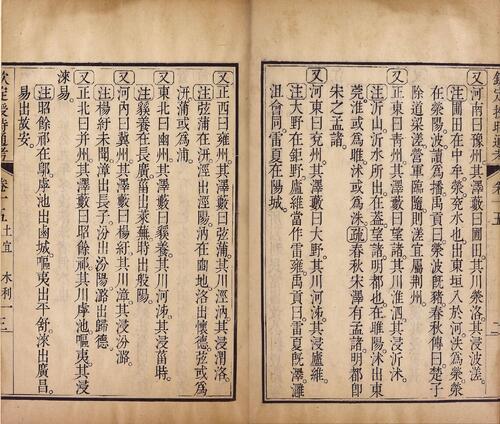 又河南曰豫州。其澤藪曰圃田。其川滎洛。其浸波溠。
注圃田在中牟。滎兗水也。出東垣入於河泆為滎。滎
在滎陽波讀為播禹貢曰滎波旣豬春秋傳曰楚子
除道梁溠營軍臨隨則溠宜屬荊州。
又正東曰青州。其澤藪曰望諸。其川淮泗。其浸沂沭。
注沂山。沂水所出。在蓋。望諸明都也。在睢陽。沭出東
莞淮或為雎沭或為洙。疏春秋宋澤有孟諸明都卽
宋之孟諸。
又河東曰兗州。其澤藪曰大野。其川河泲。其浸廬維。
注大野在鉅野。廬維當作雷雍。禹貢曰雷夏旣澤灉
沮會同。雷夏在陽城。
又正西曰雍州。其澤藪曰弦蒲。其川涇汭。其浸渭洛。
注弦蒲在汧。涇出涇陽。汭在豳地。洛出懷德。弦或為
汧蒲或為浦。
又東北曰幽州。其澤藪曰貕養。其川河泲。其浸菑時。
注貕養在長廣。菑出萊蕪。時出般陽。
又河內曰冀州。其澤藪曰楊紆。其川漳。其浸汾潞。
注楊紆未聞。漳出長子。汾出汾陽。潞出歸德。
又正北曰并州。其澤藪曰昭餘祁。其川虖池嘔夷。其浸
淶易。
注昭餘祁在鄔。虖池出鹵城。嘔夷出平舒。淶出廣昌。
易出故安。
欽定授時通考 卷十五 土宜 水利一